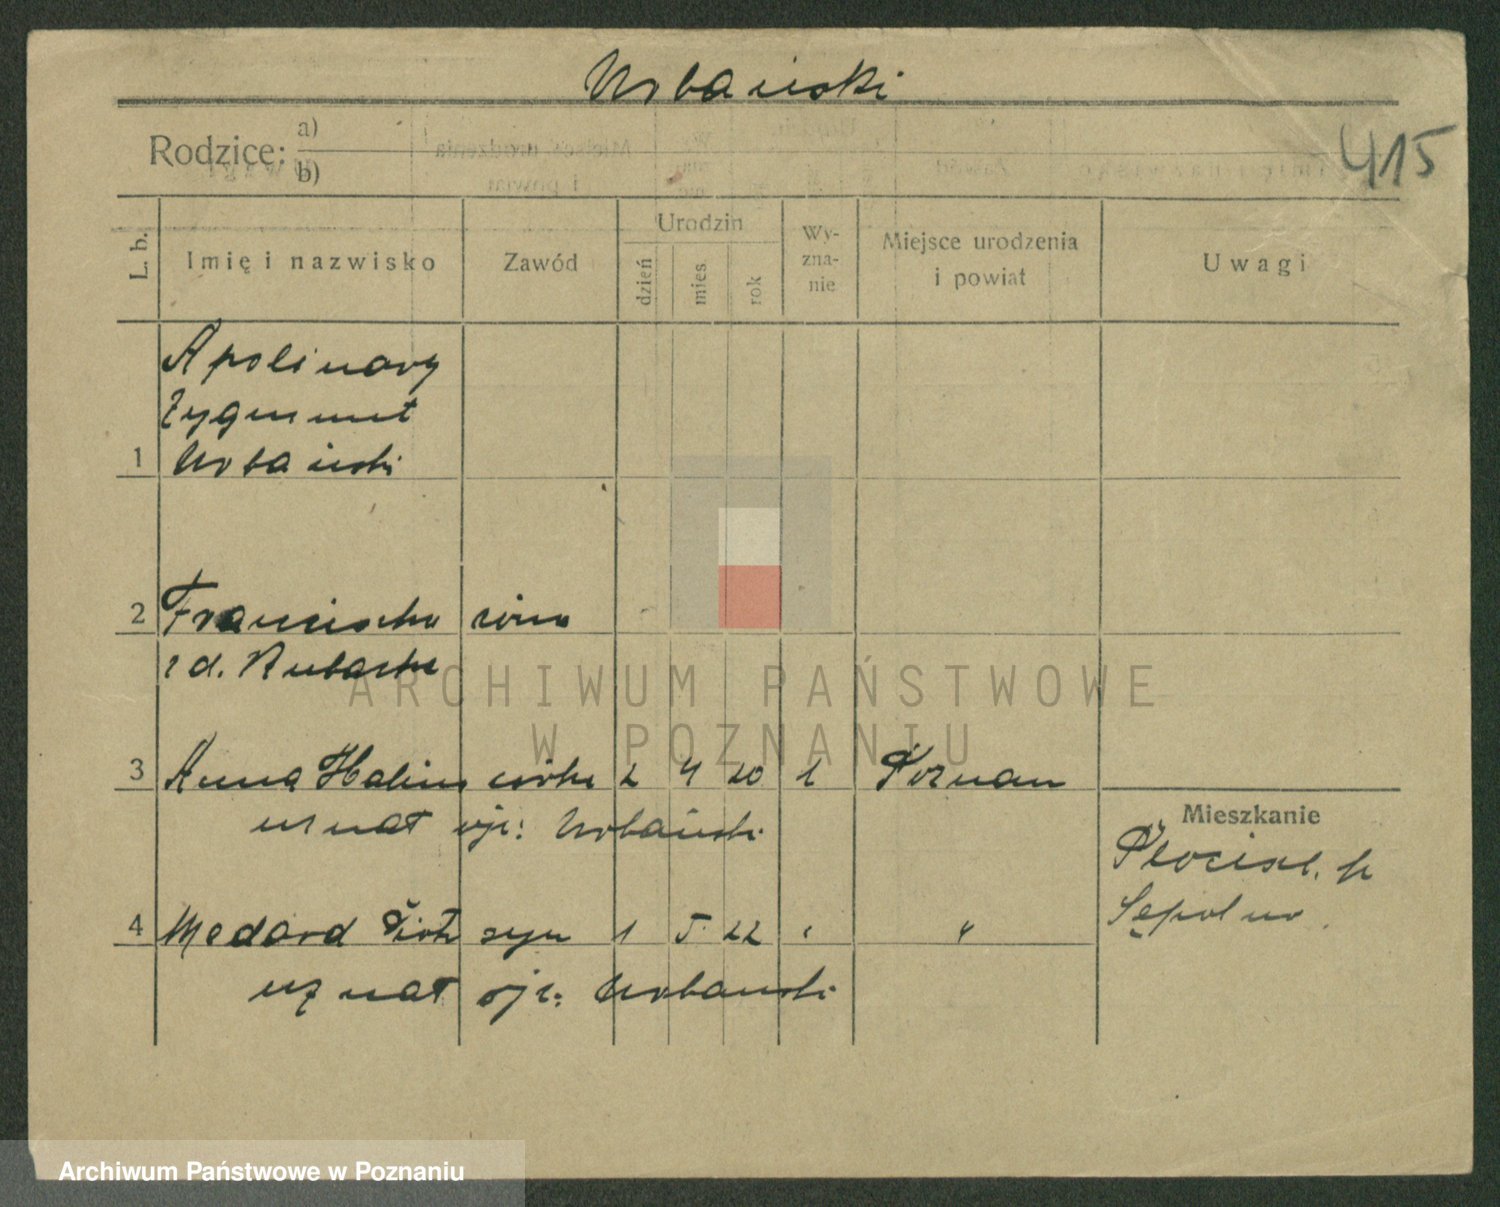 Urbański
415
Rodzice: a)
b)
L. b. Imię i nazwisko Zawód Urodzin dzień mies. rok Wy-zna-nie Miejsce urodzenia i powiat Uwagi
Apolinary
Zygmunt
1 Urbański
2 Franciszka żona
z d. Kubacka
3 Anna Halina córka 2 4 20 Poznań
uznał ojc: Urbański
Mieszkanie
4 Medard Piotr syn 1 5. 22 "
Sępolno
uznał ojc: Urbański
ARCHIWUM PAŃSTWOWE
W POZNANIU
Archiwum Państwowe w Poznaniu